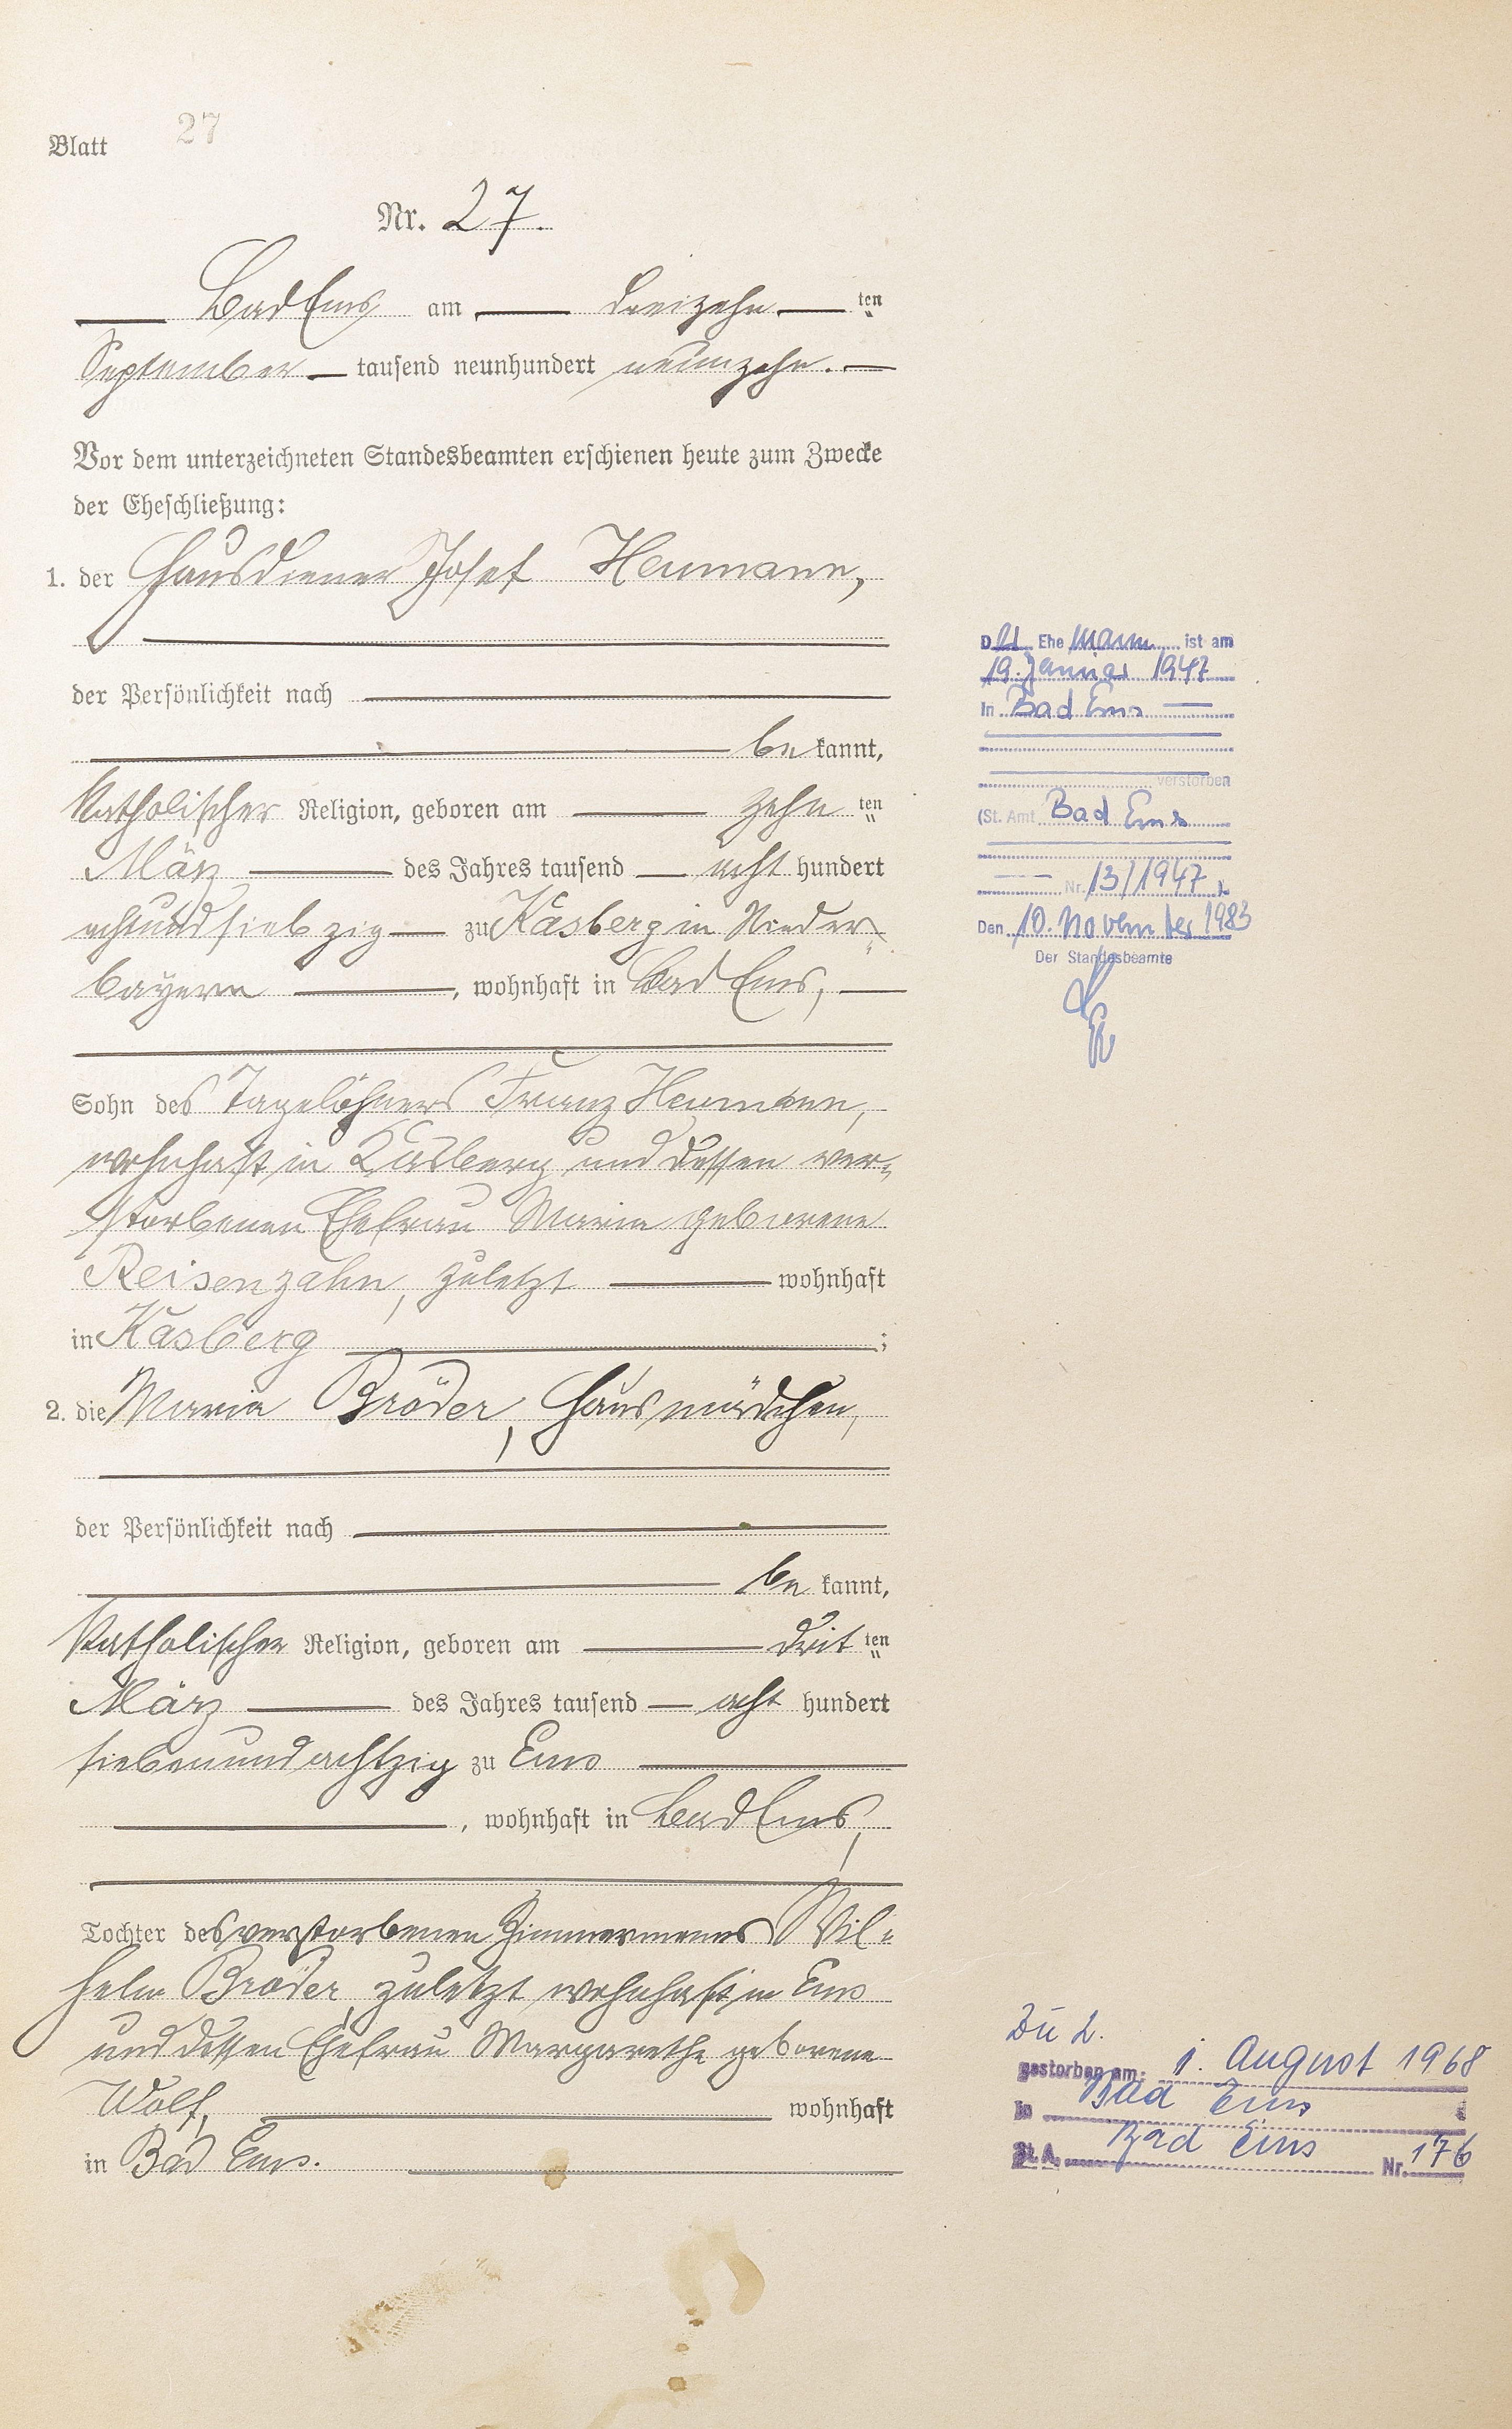 Blatt 27
Nr. 27.
Bad Ems am dreizehn ten
September tausend neunhundert neunzehn.
Vor dem unterzeichneten Standesbeamten erschienen heute zum Zwecke
der Eheschließung:
1. der Hausdiener Josef Heumann,
der Persönlichkeit nach
be kannt,
katholischer Religion, geboren am zehn ten
März des Jahres tausend acht hundert
achtundsiebzig zu Käsberg in Nieder-
bayern, wohnhaft in Bad Ems,
Sohn des Tagelöhners Franz Heumann,
wohnhaft in Käsberg und dessen ver-
storbenen Ehefrau Maria geborene
Reisenzahn, zuletzt wohnhaft
in Käsberg ;
2. die Maria Bröder, Hausmädchen,
der Persönlichkeit nach
be kannt,
katholischer Religion, geboren am drit ten
März des Jahres tausend acht hundert
siebenundachtzig zu Ems
, wohnhaft in Bad Ems,
Tochter des verstorbenen Zimmermanns Wil-
helm Bröder, zuletzt wohnhaft in Ems
und dessen Ehefrau Margarethe geborene
Wolf, wohnhaft
in Bad Ems.
Der Ehemann ist am
19. Januar 1947
in Bad Ems
verstorben
(St. Amt Bad Ems
Nr. 13/1947).
Den 10. November 1983
Der Standesbeamte
Zu 2.
gestorben am: 1. August 1968
in Bad Ems
St. A. Bad Ems Nr. 176